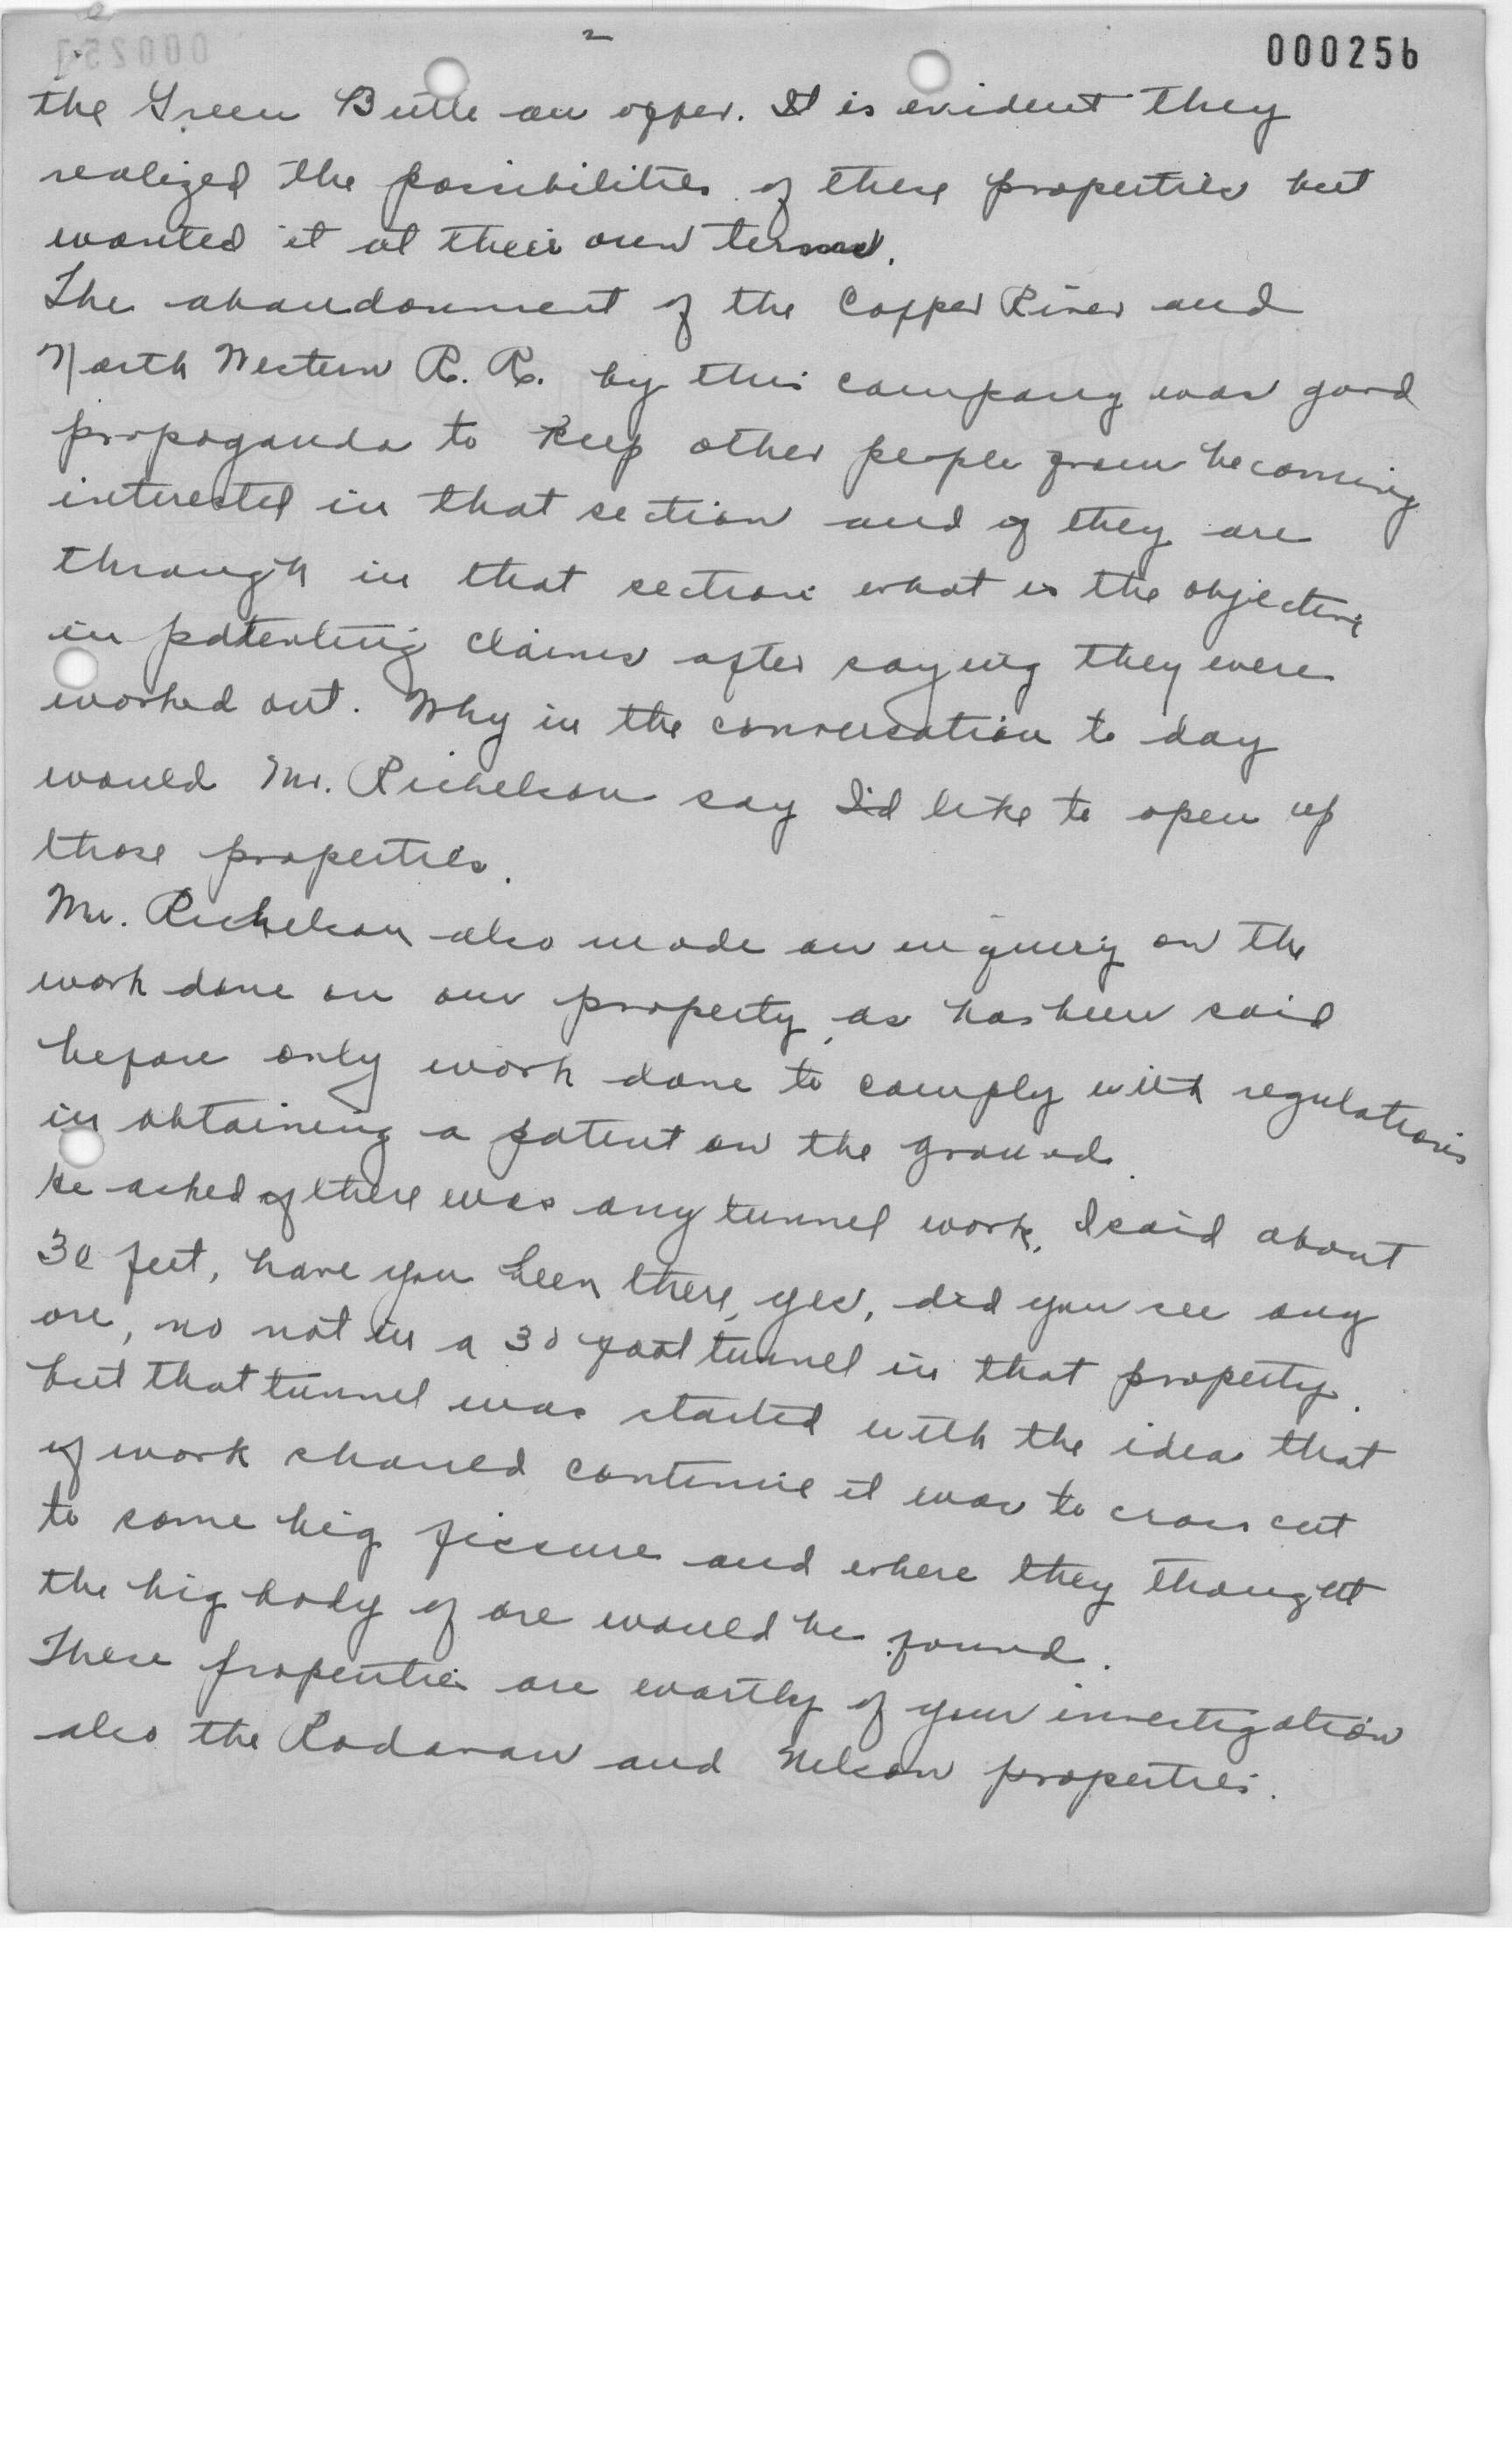 2
000256
the Green Butte an offer. It is evident they
realized the possibilities of these properties but
wanted it at their own terms.
The abandonment of the Copper River and
North Western R. R. by this company was good
propaganda to keep other people from becoming
interested in that section and if they are
through in that section what is the objective
in patenting claims after saying they were
worked out. Why in the conversation to day
would Mr. Richelson say I'd like to open up
those properties.
Mr. Richelson also made an inquiry on the
work done on our property, as has been said
before only work done to comply with regulations
in obtaining a patent on the ground.
He asked if there was any tunnel work, I said about
30 feet, have you been there, yes, did you see any
ore, no not in a 30 foot tunnel in that property.
but that tunnel was started with the idea that
if work should continue it was to cross cut
to some big fissure and where they thought
the big body of ore would be found.
These properties are worthy of your investigation
also the Radovan and Nelson properties.